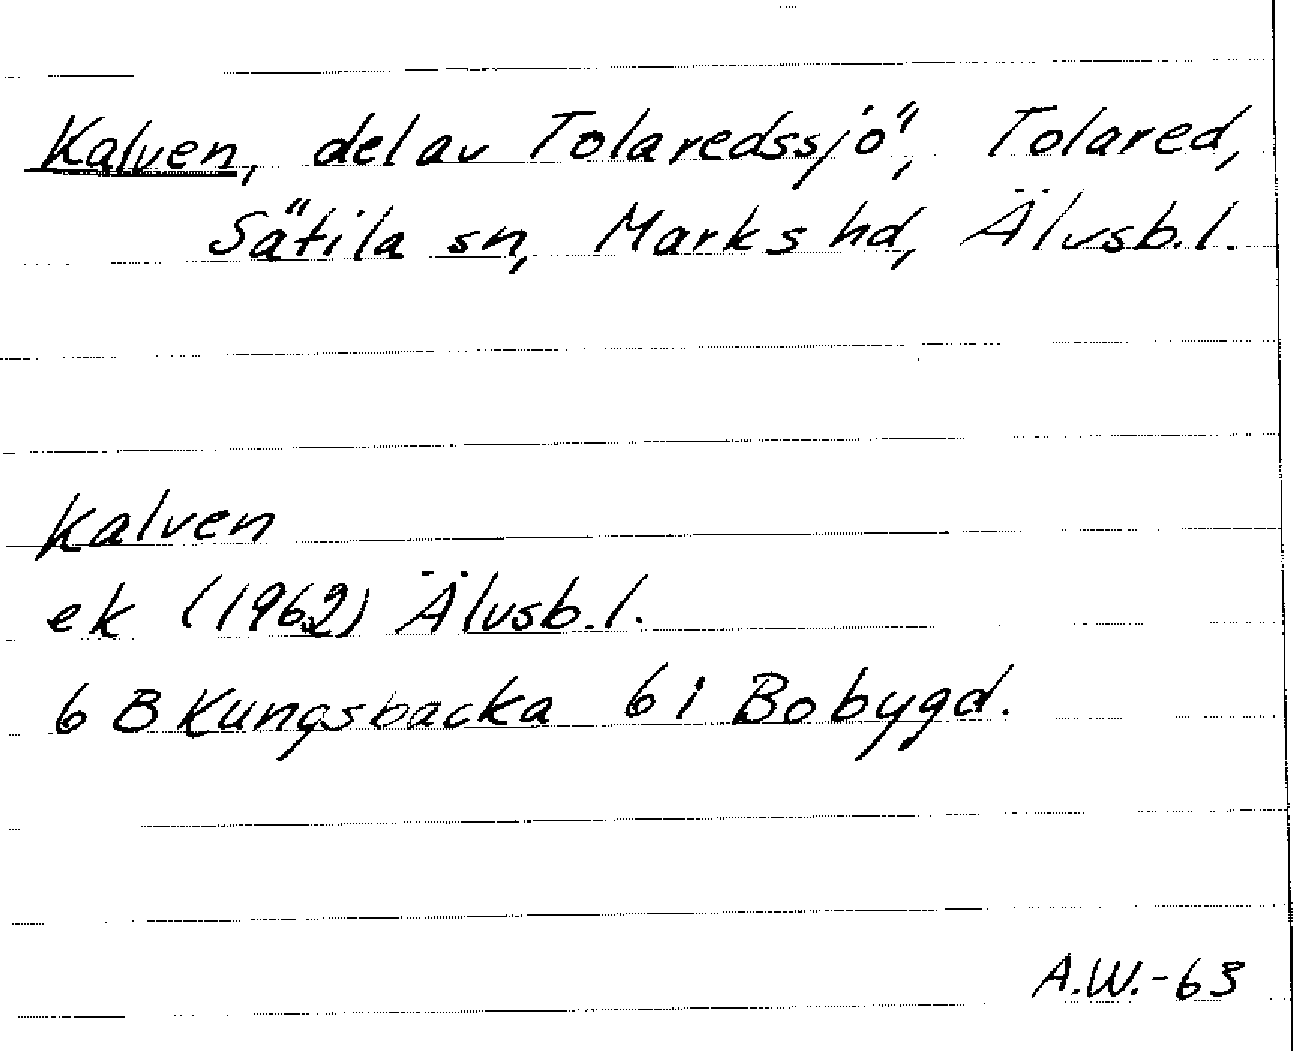 Kalven, del av Tolaredssjö, Tolared,
Sätila sn, Marks hd, Älvsb.l.
Kalven
ek (1962) Älvsb.l.
6 B Kungsbacka 6 i Bobygd.
A.W.-63